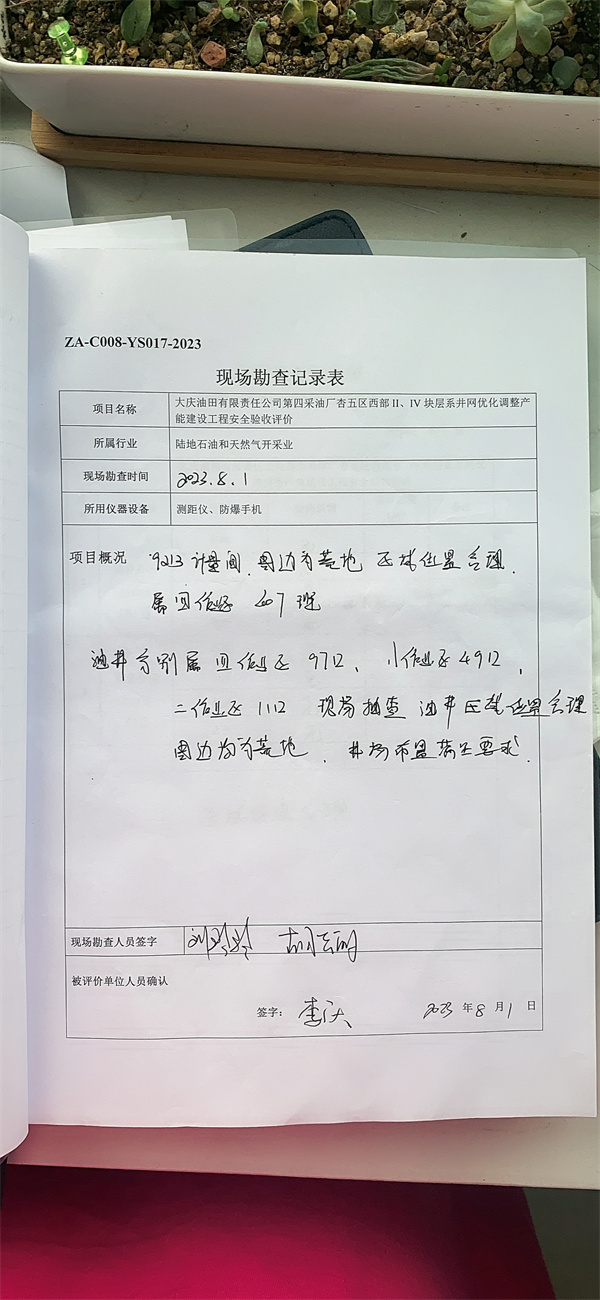 ZA-C008-YS017-2023
现场勘查记录表
项目名称
大庆油田有限责任公司第四采油厂杏五区西部 II、IV 块层系井网优化调整产
能建设工程安全验收评价
所属行业
陆地石油和天然气开采业
现场勘查时间
2023.8.1
所用仪器设备
测距仪、防爆手机
项目概况
计量间.周边为荒地 区域位置合理.
属 作业区 队
油井分别属 作业区 97口、 作业区 49口、
二作业区 11口 现场抽查 油井区域位置合理
周边均为荒地、井场布置满足要求.
现场勘查人员签字
被评价单位人员确认
签字：
2023 年 8 月 1 日